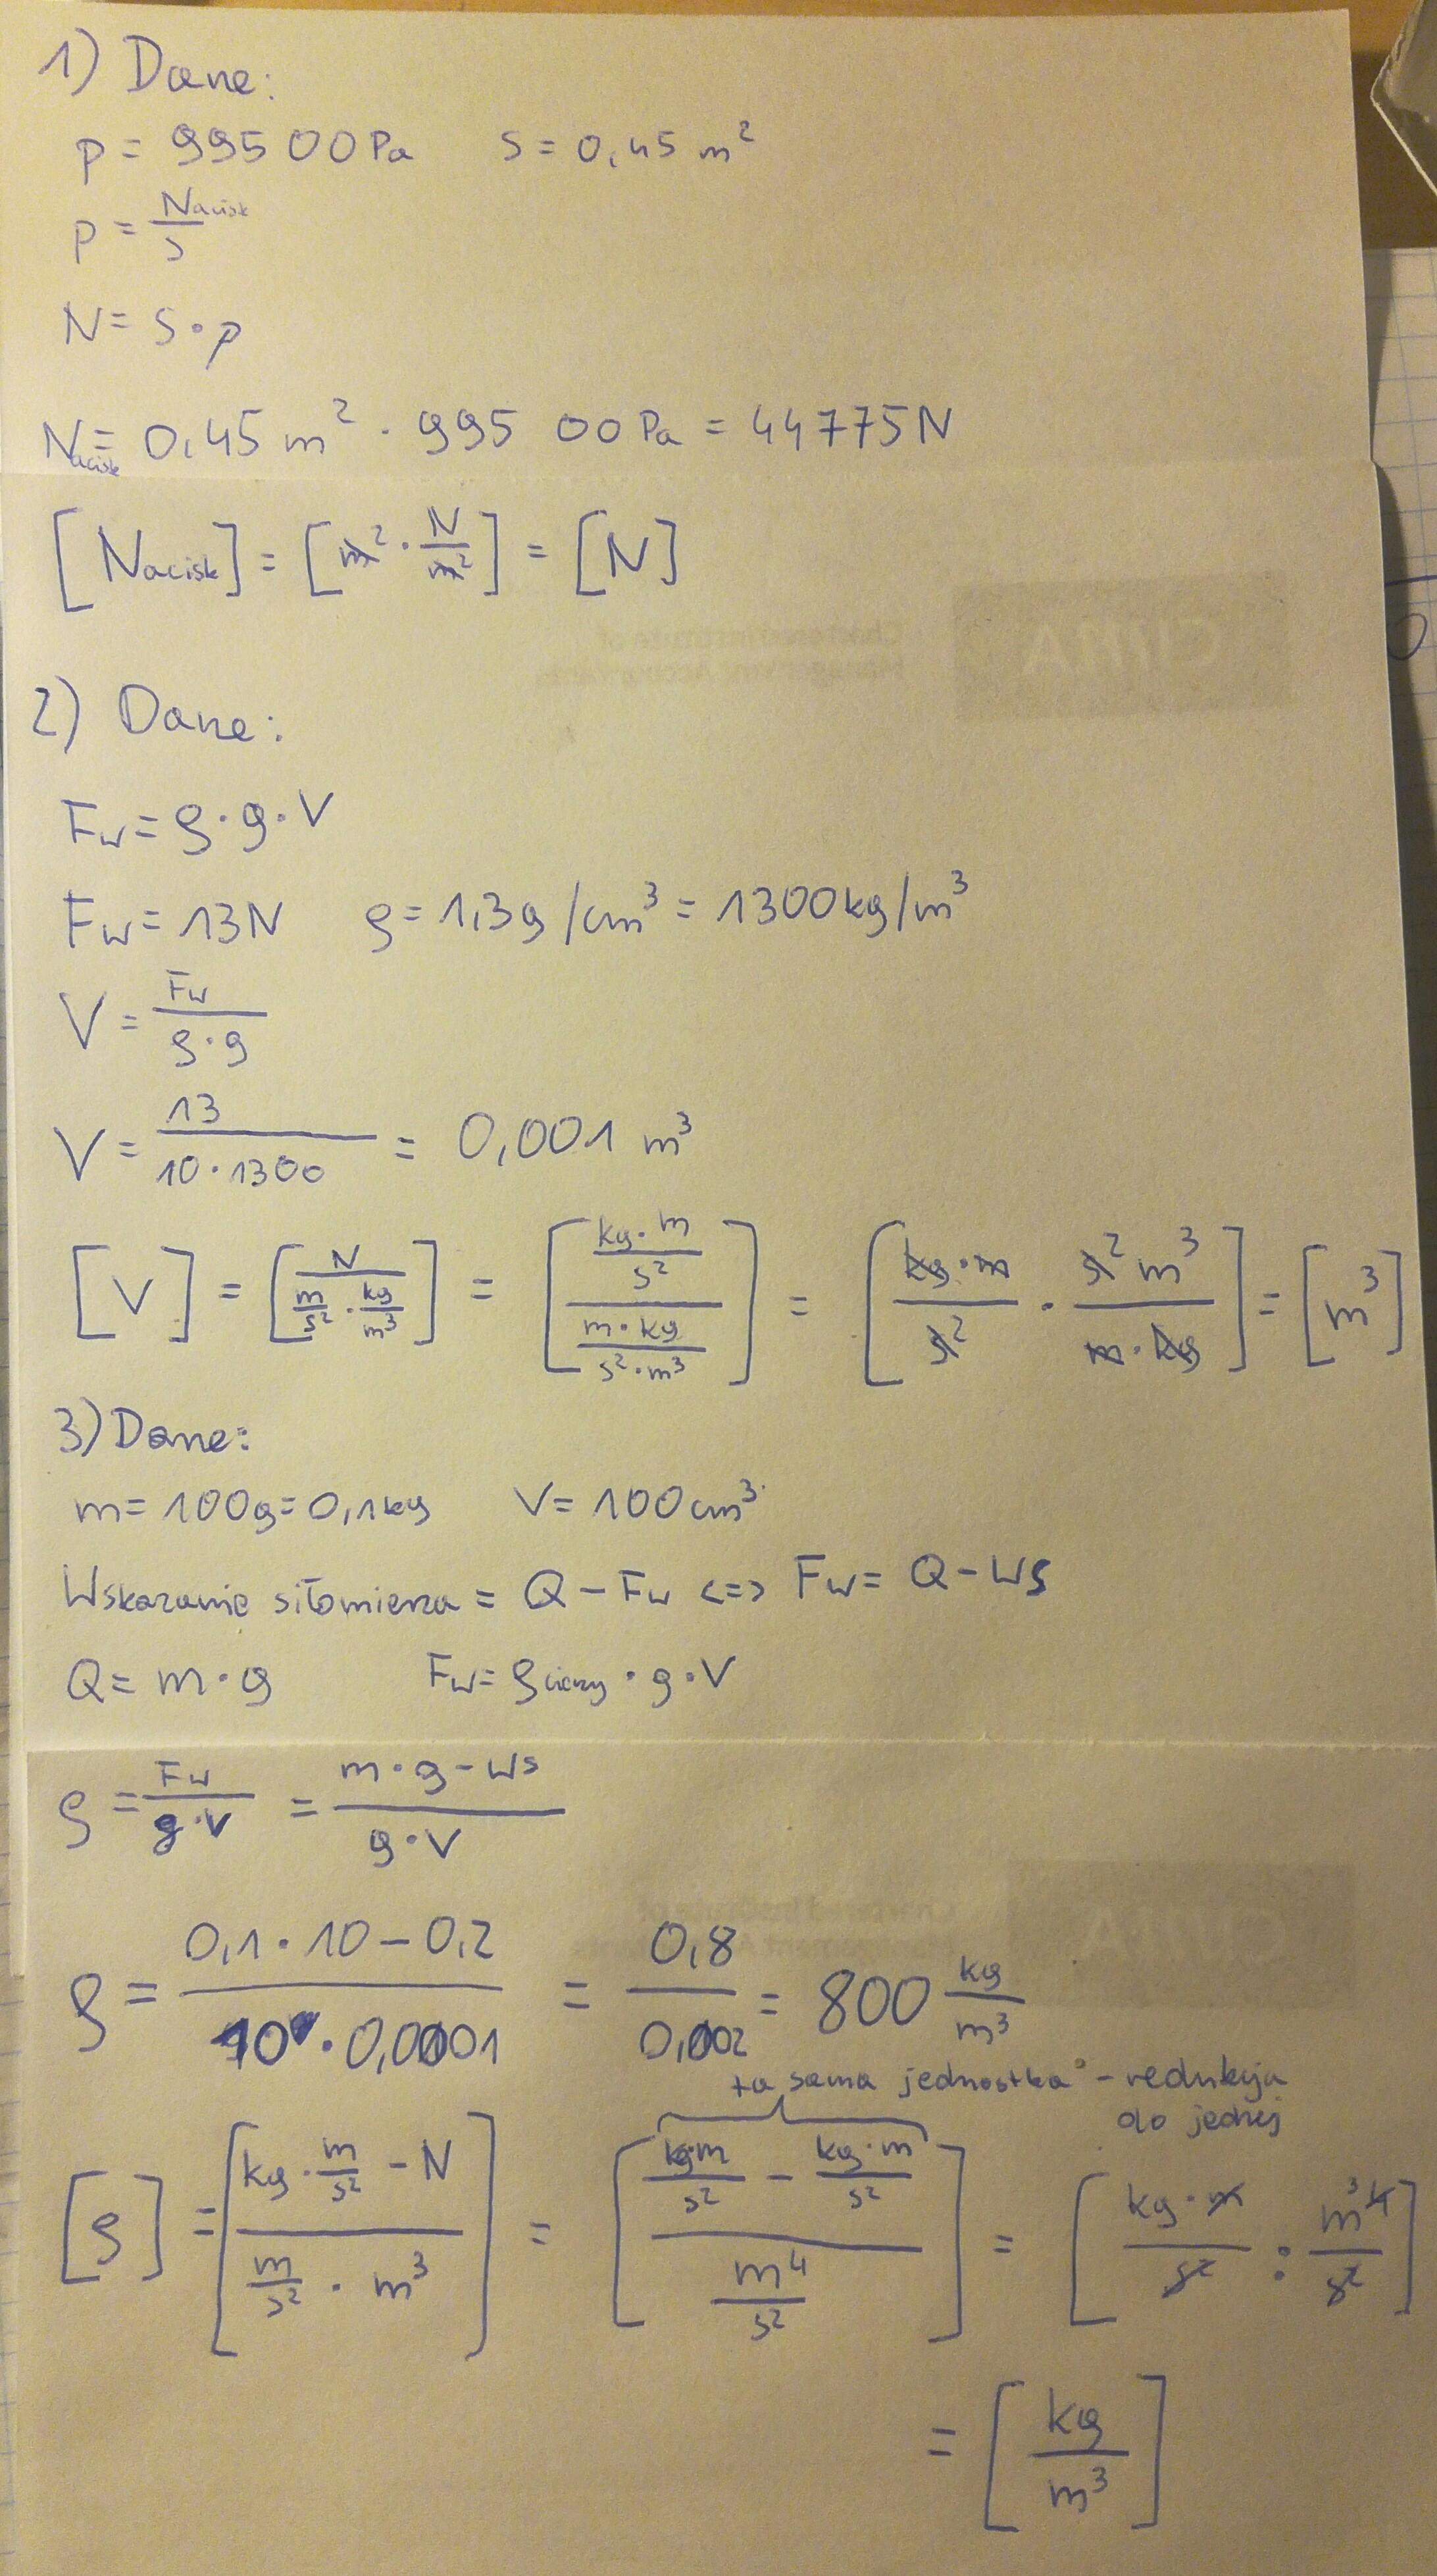 1) Dane:
p = 995 00 Pa s = 0,45 m²
p = Nacisk / s
N = s · p
Nacisk = 0,45 m² · 995 00 Pa = 44775 N
[Nacisk] = [m² · N/m²] = [N]
2) Dane:
Fw = ρ · g · V
Fw = 13N ρ = 1,3g/cm³ = 1300kg/m³
V = Fw / ρ · g
V = 13 / 10 · 1300 = 0,001 m³
[V] = [N / (m/s² · kg/m³)] = [(kg · m / s²) / (m · kg / s² · m³)] = [kg · m / s² · s² m³ / m · kg] = [m³]
3) Dane:
m = 100g = 0,1kg V = 100cm³
Wskazanie siłomierza = Q - Fw <=> Fw = Q - Ws
Q = m · g Fw = ρcieczy · g · V
ρ = Fw / g · V = m · g - Ws / g · V
ρ = 0,1 · 10 - 0,2 / 10 · 0,0001 = 0,8 / = 800 kg/m³
ta sama jednostka - redukcja
do jednej
[ρ] = [(kg · m/s² - N) / (m/s² · m³)] = [(kg·m / s² - kg · m / s²) / (m⁴ / s²)] = [kg · m / s² : m³ ⁴ / s²]
= [kg / m³]